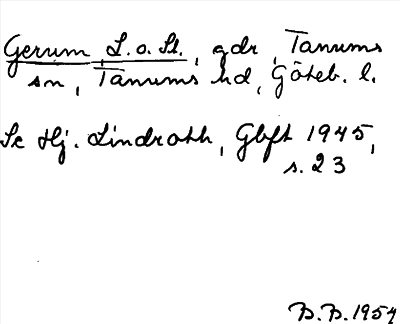 Gerum, L. o. St., gdr, Tanums
sn, Tanums hd, Göteb. l.
Se Hj. Lindroth, Gbft 1945,
s. 23
B.B. 1954